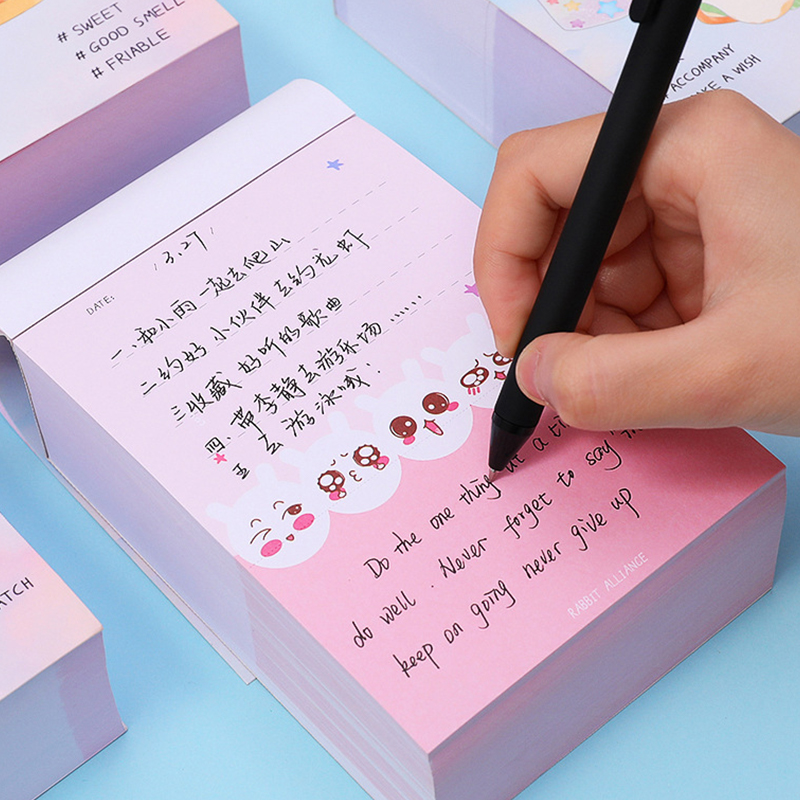 # SWEET
# GOOD SMELL
# FRIABLE
ACCOMPANY
A WISH
3.27
DATE:
一.和小雨一起去爬山
二约好小伙伴去钓龙虾
三收藏好听的歌曲
四、带李静去游乐场……
五 去游泳哦!
Do the one thing at a
do well. Never forget to say
keep on going never give up
RABBIT ALLIANCE